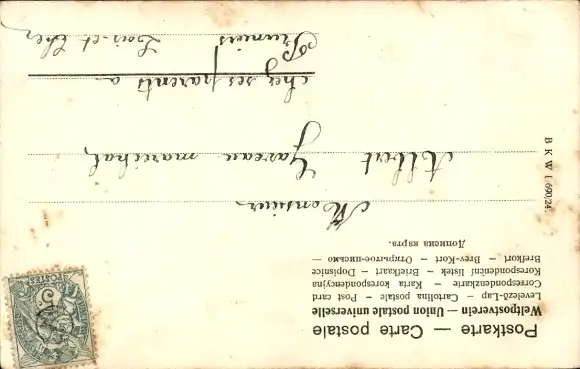 Postkarte — Carte postale
Weltpostverein — Union postale universelle
Levelező-Lap – Cartolina postale – Post card
Correspondenzkarte – Karta korespondencyjna
Korespondenční lístek – Briefkaart – Dopisnice
Brefkort – Brev-Kort – Открытое-письмо –
Дописна карта.
B K W I. 690/24.
POSTES
5
Monsieur
Albert Gareau maréchal
chez ses parents a
Pruniers
Loir-et Cher